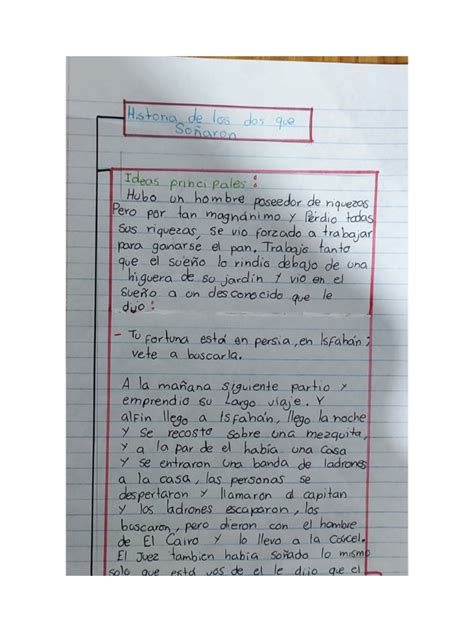 Historia de los dos que
Soñaron
Ideas principales:
Hubo un hombre poseedor de riquezas
Pero por tan magnánimo y Perdio todas
sus riquezas, se vio forzado a trabajar
para ganarse el pan. Trabajo tanto
que el sueño lo rindio debajo de una
higuera de su jardín y vio en el
sueño a un desconocido que le
dijo:
- Tu fortuna está en persia, en Isfahán;
vete a buscarla.
A la mañana siguiente partio y
emprendio su Largo viaje. Y
alfin llego a Isfahán, llego la noche
Y se recosto sobre una mezquita,
y a la par de el había una casa
Y se entraron una banda de ladrones
a la casa, las personas se
despertaron y llamaron al capitan
y los ladrones escaparon, los
buscaron, pero dieron con el hombre
de El Cairo y lo llevo a la Cárcel.
El Juez tambien había soñado lo mismo
solo que esta vos de el le dijo que el